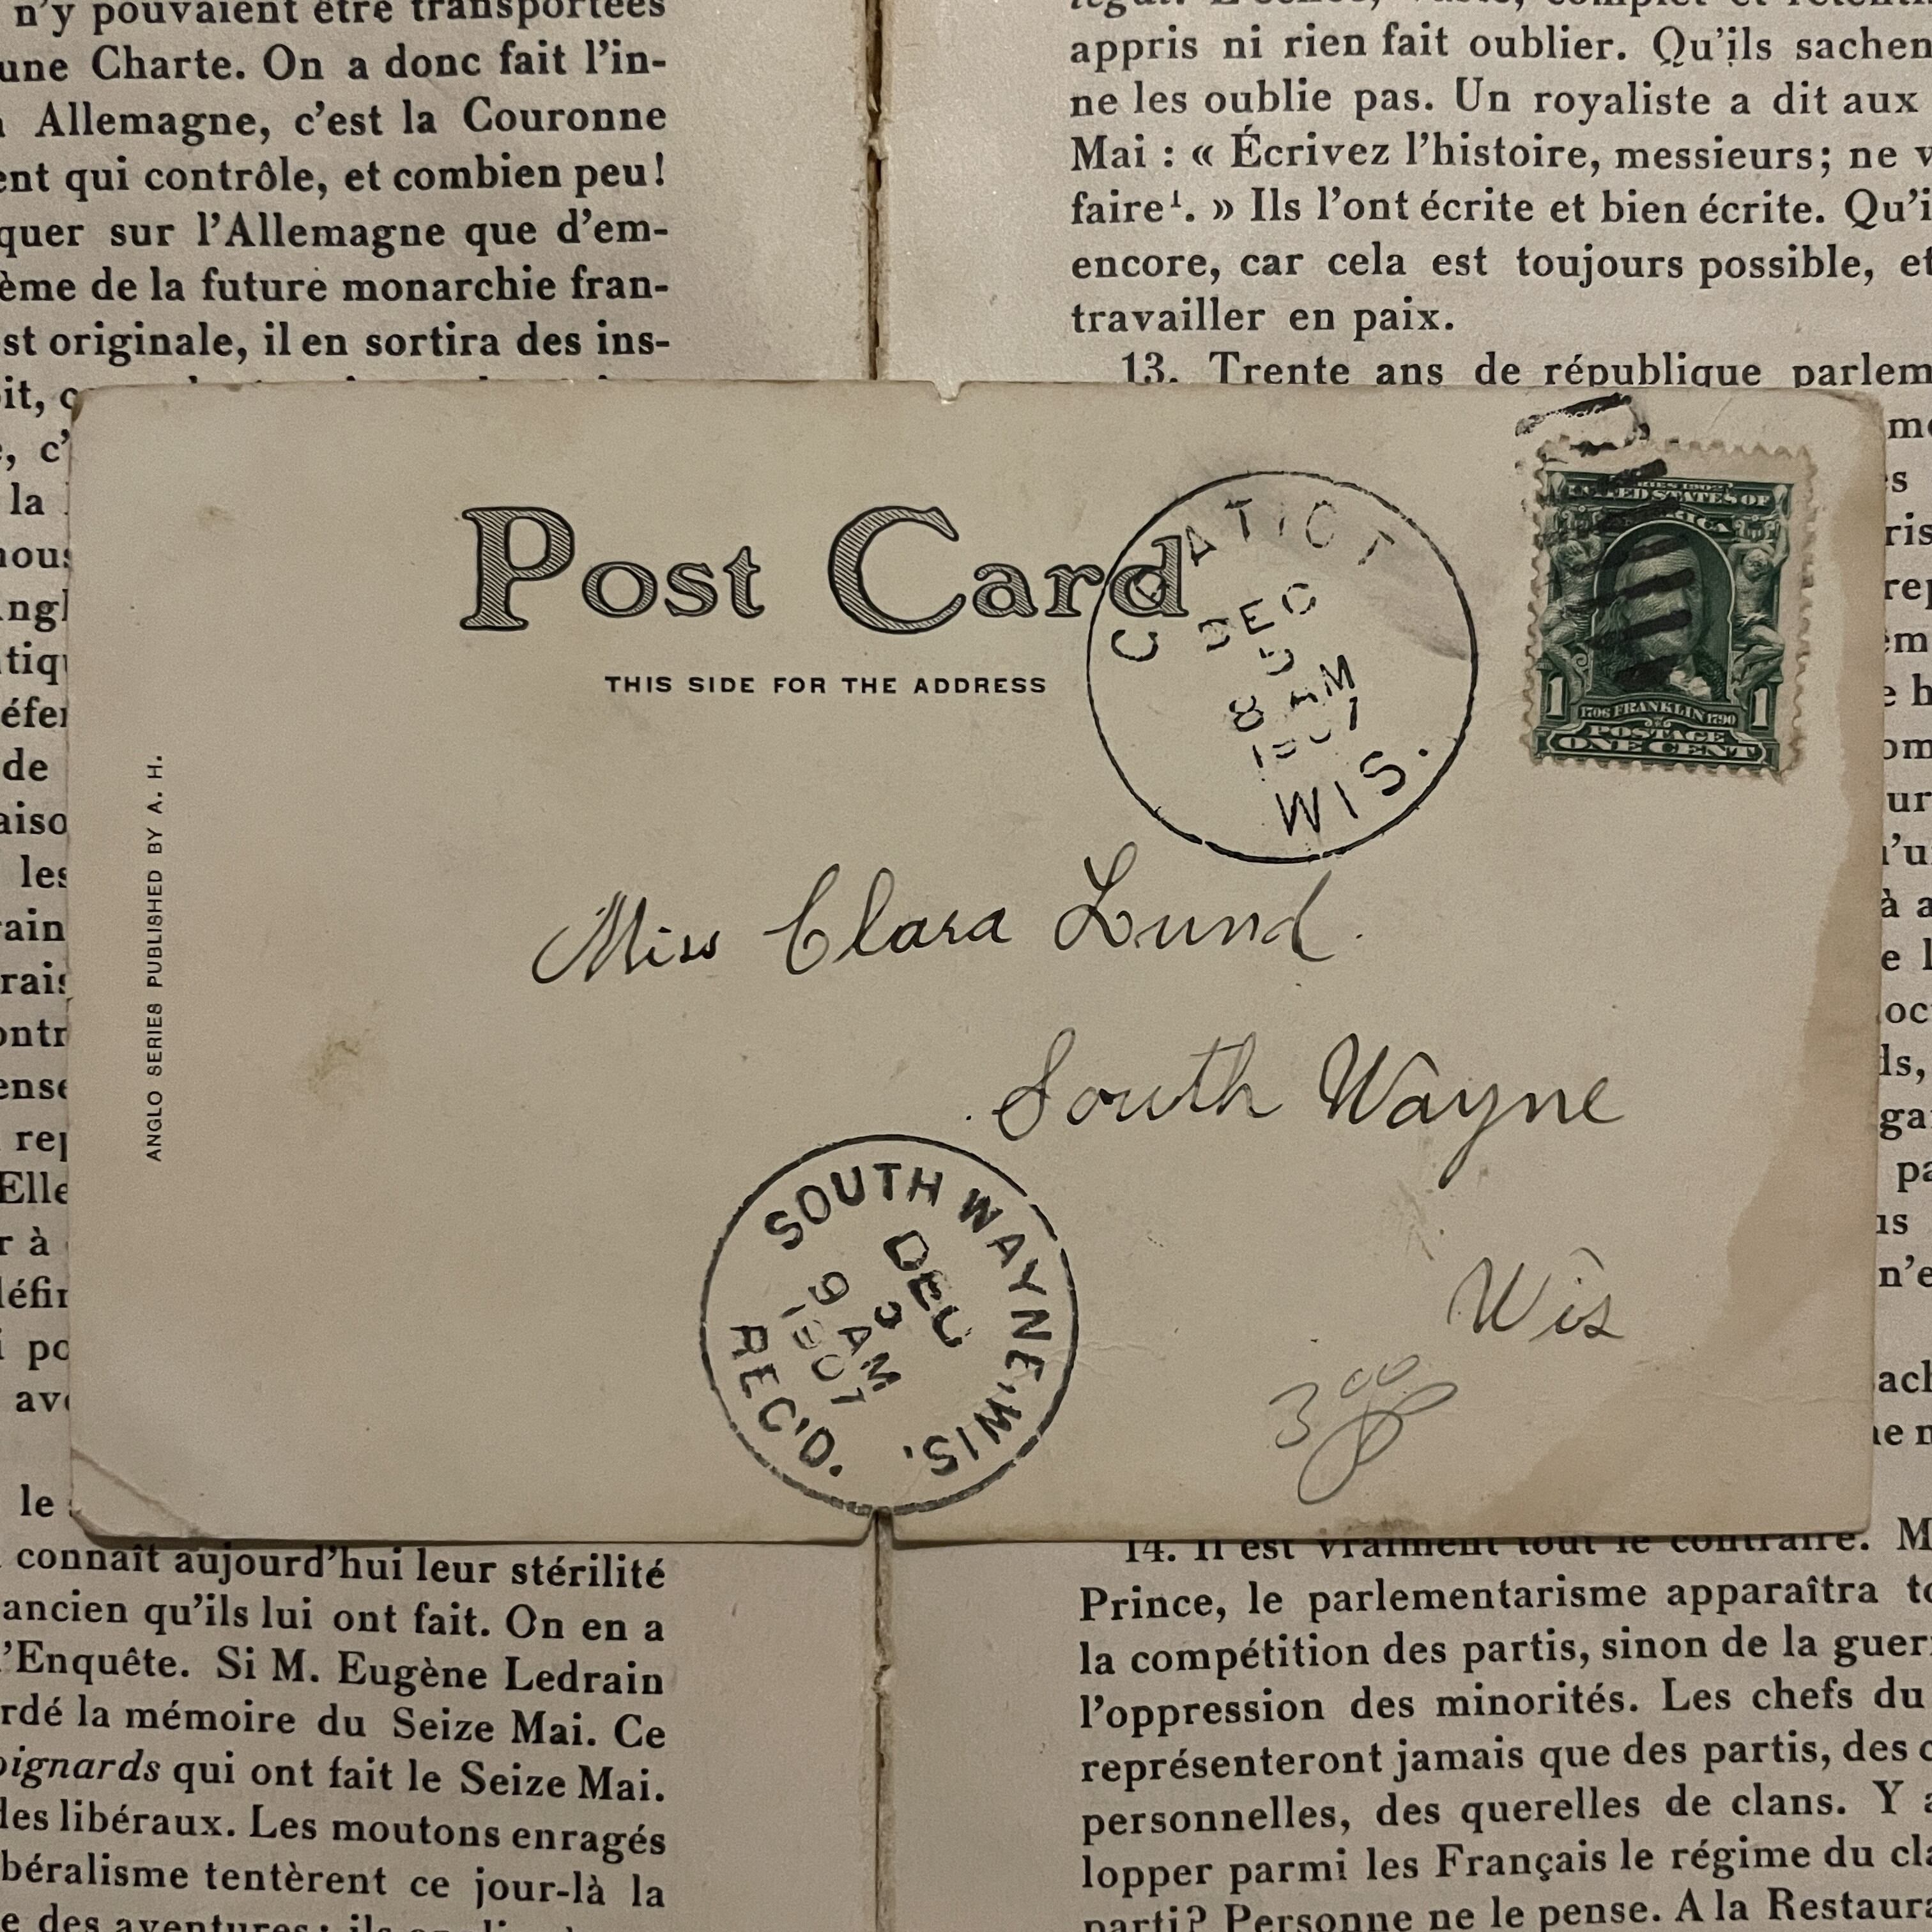 n'y pouvaient être transportées
une Charte. On a donc fait l'in-
Allemagne, c'est la Couronne
ent qui contrôle, et combien peu!
quer sur l'Allemagne que d'em-
ème de la future monarchie fran-
st originale, il en sortira des ins-
oit,
c'
la
nous
de
les
Elle
r à
le
connaît aujourd'hui leur stérilité
ancien qu'ils lui ont fait. On en a
l'Enquête. Si M. Eugène Ledrain
rdé la mémoire du Seize Mai. Ce
oignards qui ont fait le Seize Mai.
des libéraux. Les moutons enragés
béralisme tentèrent ce jour-là la
des aventures; ils
appris ni rien fait oublier. Qu'ils sachen
ne les oublie pas. Un royaliste a dit aux
Mai : « Écrivez l'histoire, messieurs; ne v
faire¹. » Ils l'ont écrite et bien écrite. Qu'i
encore, car cela est toujours possible, et
travailler en paix.
13. Trente ans de république parlem
14. Il est vraiment tout le contraire. M
Prince, le parlementarisme apparaîtra to
la compétition des partis, sinon de la guer
l'oppression des minorités. Les chefs du
représenteront jamais que des partis, des c
personnelles, des querelles de clans. Y a
lopper parmi les Français le régime du cla
parti? Personne ne le pense. A la Restaur
Post Card
THIS SIDE FOR THE ADDRESS
ANGLO SERIES PUBLISHED BY A. H.
DEC
8 AM
1907
WIS.
UNITED STATES OF
AMERICA
1 1
1706 FRANKLIN 1790
POSTAGE
ONE CENT
Miss Clara Lund.
South Wayne
Wis
300
SOUTH WAYNE, WIS.
DEC
9 AM
1907
REC'D.